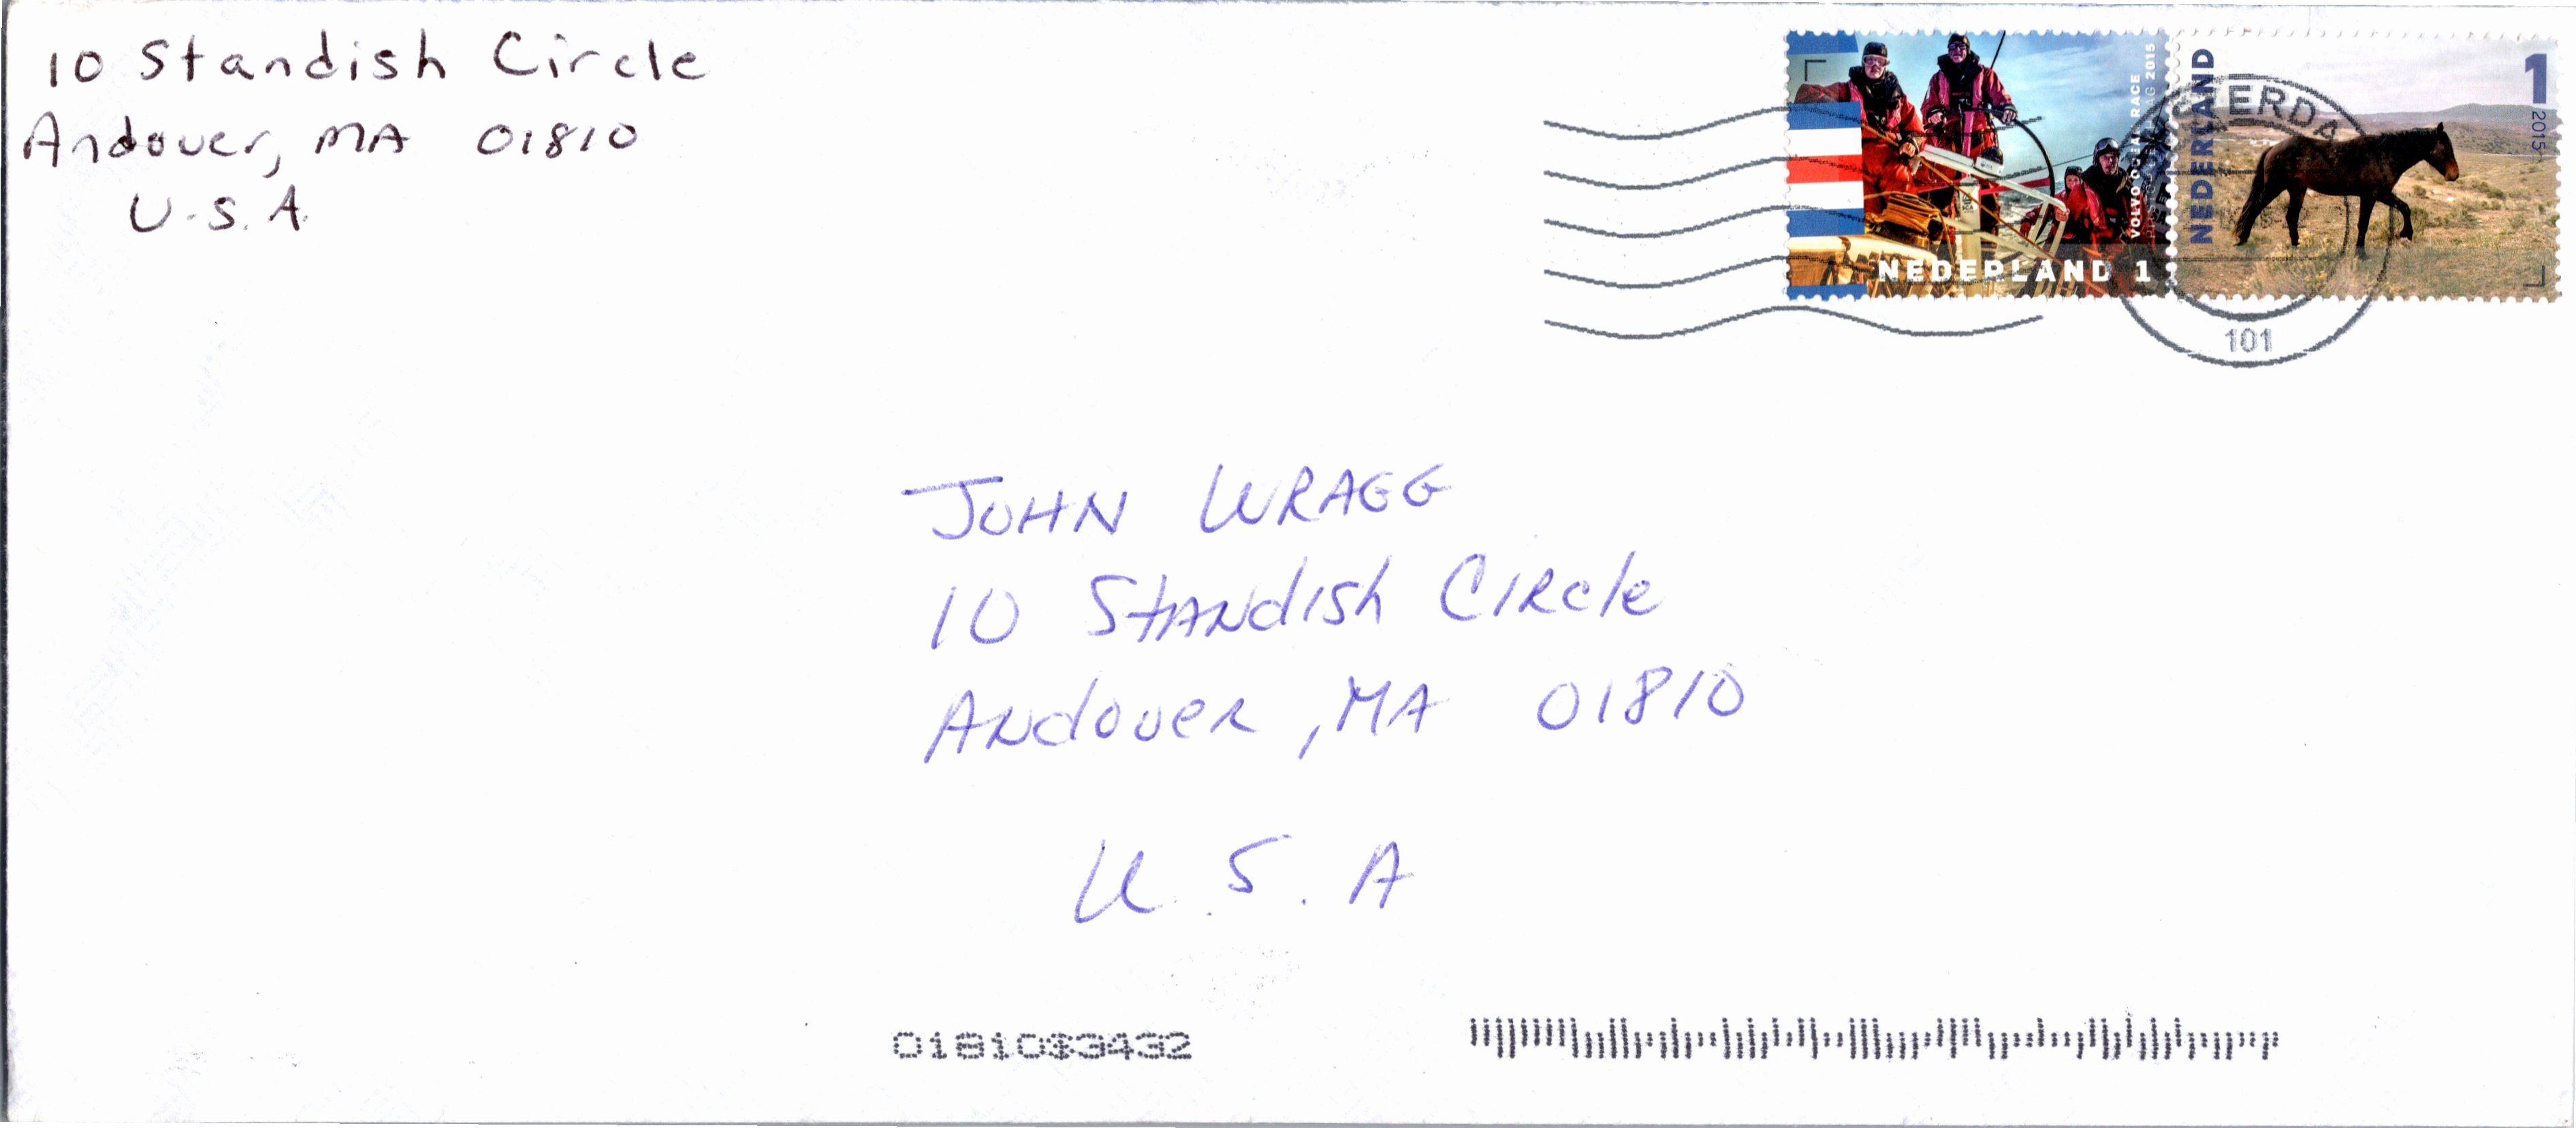 10 Standish Circle
Andover, MA 01810
U.S.A.
VOLVO OCEAN RACE
2015
NEDERLAND 1
NEDERLAND
1
2015
ERDA
101
JOHN WRAGG
10 Standish Circle
Andover, MA 01810
U.S.A
01810$3432